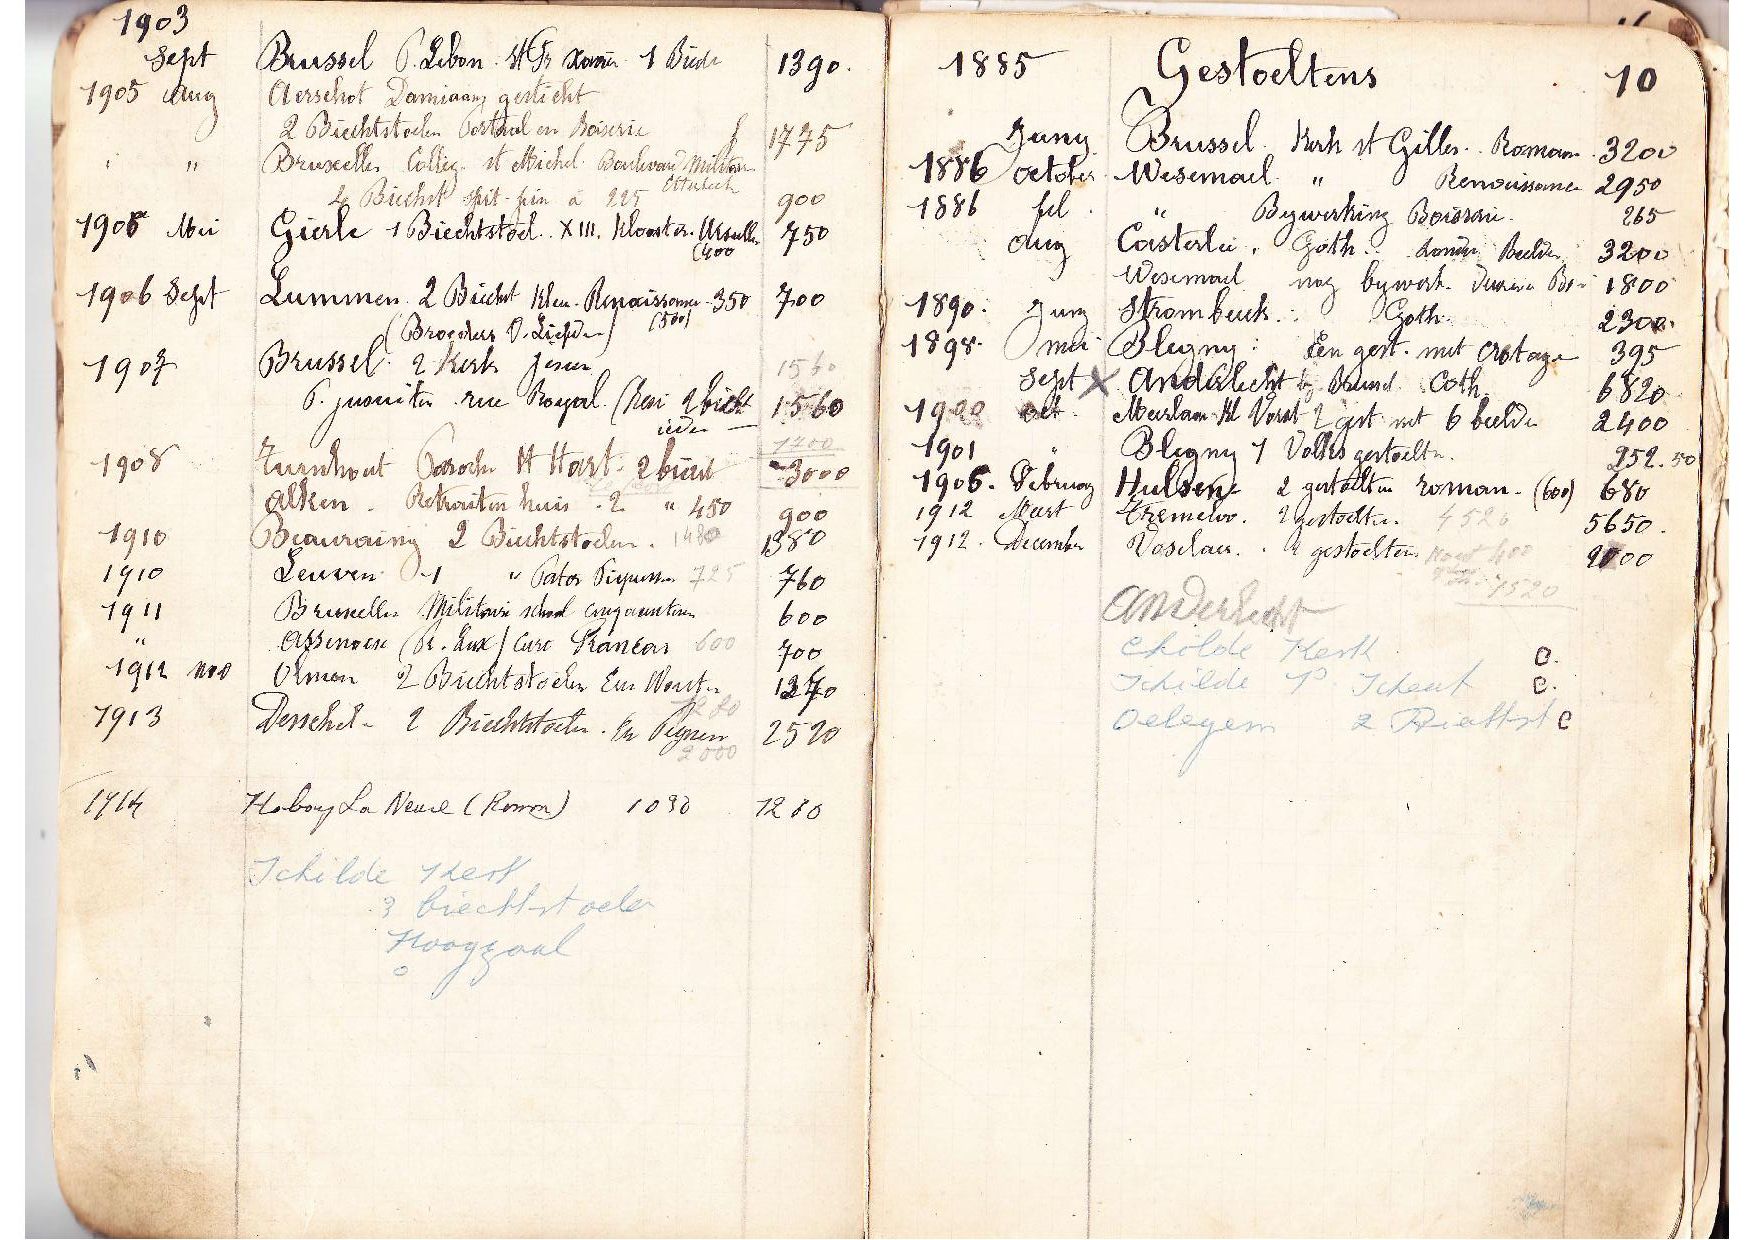 1903
Sept Brussel P. Lebon. St Fr Xavier 1 Biech 1390.
1905 Aug Aerschot Damiaans gesticht
2 Biechtstoelen Portaal en Boiserie 1775
" " Bruxelles Colleg. St Michel Boulevard Militair
Etterbeek
4 Biecht spit-pin à 225 900
1906 Mei Gierle 1 Biechtstoel. XIII. Klooster. Ursull 750
(400
1906 Sept Lummen 2 Biecht Kleu. Renaissance. 350 700
(Broeders V. Liefde) (500)
1907 Brussel. 2 Kerk Jesu 1560
P. Jesuiten rue Royal. (Ren 2 biecht 1560
ieder —
1700
1908 Turnhout Paroch H Hart. 2 biecht 3000
Alken. Retraiten huis. 2 " 450 900
1910 Beauraing 2 Biechtstoelen. 1480 1380
1910 Leuven 1 " Pater Picpussen 725 760
1911 Bruxelles Militaire school 600
" Assenois (Pr. Lux) Curé François 600 700
1912 nov 2 Biechtstoelen 1370
1280
1913 Desschel 2 Biechtstoelen. 2520
2000
1914 Habay La Neuve (Roman) 1090 1280
Schilde Kerk
3 biechtstoelen
Hoogzaal
1885 Gestoeltens 10
Juny Brussel. Kerk St Gilles. Roman. 3200
1886 October Wesemael " Renaissance 2950
1886 Jul. " Bywerking Boisserie. 265
Aug Casterlee. Goth. zonder Beelden 3200
Wesemael nog bywerk. 1800
1890. Juny Strombeek. Goth. 2300
1898. mei Blegny: Een gest. met 395
Sept X Anderlecht by Brussel. Goth. 6820
1900 oct. Meerlaer Kl Vorst 2 gest met 6 beelden 2400
1901 " Blegny 1 Volks gestoelte. 252.50
1906. February Hulsen 2 gestoelten roman. (600) 680
1912 Maart Tremeloo. 2 gestoelten 4520 5650.
1912. December Vosselaer. 2 gestoelten 400 2000
1520
Anderlecht
Schilde Kerk C.
Schilde P. Schaut C.
Oelegem 2 C